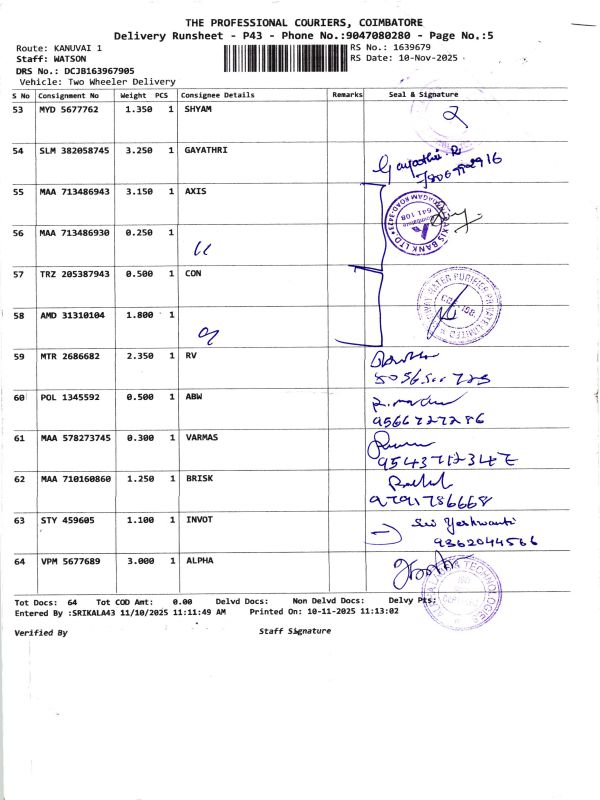 THE PROFESSIONAL COURIERS, COIMBATORE
Delivery Runsheet - P43 - Phone No.:9047080280 - Page No.:5
Route: KANUVAI 1 RS No.: 1639679
Staff: WATSON RS Date: 10-Nov-2025
DRS No.: DCJB163967905
Vehicle: Two Wheeler Delivery
S No Consignment No Weight PCS Consignee Details Remarks Seal & Signature
53 MYD 5677762 1.350 1 SHYAM
54 SLM 382058745 3.250 1 GAYATHRI Gayathri. R
55 MAA 713486943 3.150 1 AXIS AXIS BANK LTD
56 MAA 713486930 0.250 1
57 TRZ 205387943 0.500 1 CON WATER PURIFIER PRIVATE LIMITED
58 AMD 31310104 1.800 1
59 MTR 2686682 2.350 1 RV
60 POL 1345592 0.500 1 ABW
9566727286
61 MAA 578273745 0.300 1 VARMAS
62 MAA 710160860 1.250 1 BRISK
9791786668
63 STY 459605 1.100 1 INVOT Sri Yeshwanti
9362044566
64 VPM 5677689 3.000 1 ALPHA TECHNOLOGIES
Tot Docs: 64 Tot COD Amt: 0.00 Delvd Docs: Non Delvd Docs: Delvy Pts:
Entered By :SRIKALA43 11/10/2025 11:11:49 AM Printed On: 10-11-2025 11:13:02
Verified By Staff Signature